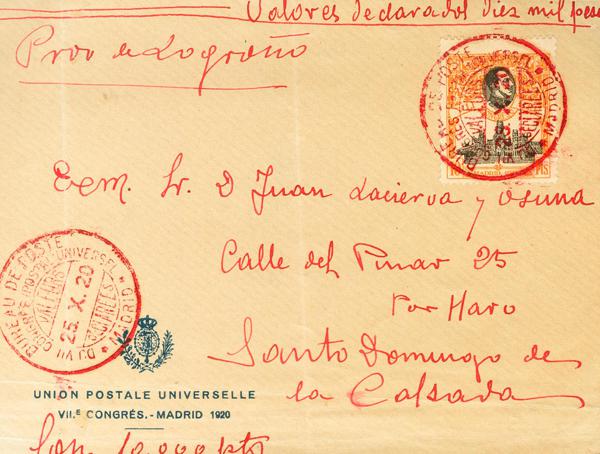 Valores declarados diez mil pese
Prov de Logroño
Exm. Sr. D Juan Lacierva y Osuna
Calle del Pinar 25
Por Haro
Santo Domingo de
la Calsada
BUREAU DE POSTE
DU VII CONGRES POSTAL UNIVERSEL
VALEURS
25. X. 20
DECLAREES
MADRID
UNION POSTALE UNIVERSELLE
VII.E CONGRÉS.-MADRID 1920
Son 10.000 pts